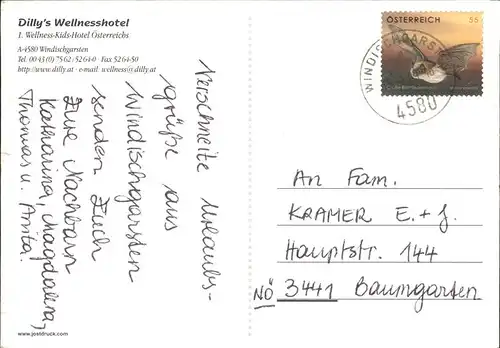 Dilly's Wellnesshotel
1. Wellness-Kids-Hotel Österreichs
A-4580 Windischgarsten
Tel 00 43 (0) 75 62 / 52 64-0 · Fax 52 64-50
http://www.dilly.at · e-mail wellness@dilly.at
Verschneite Urlaubs-
grüße aus
Windischgarsten
senden Euch
Eure Nachbarn
Katharina, Magdalena,
Thomas u. Anita.
www.jostdruck.com
ÖSTERREICH 55
WINDISCHGARSTEN
4580
An Fam.
KRAMER E. + J.
Hauptstr. 144
NÖ 3441 Baumgarten